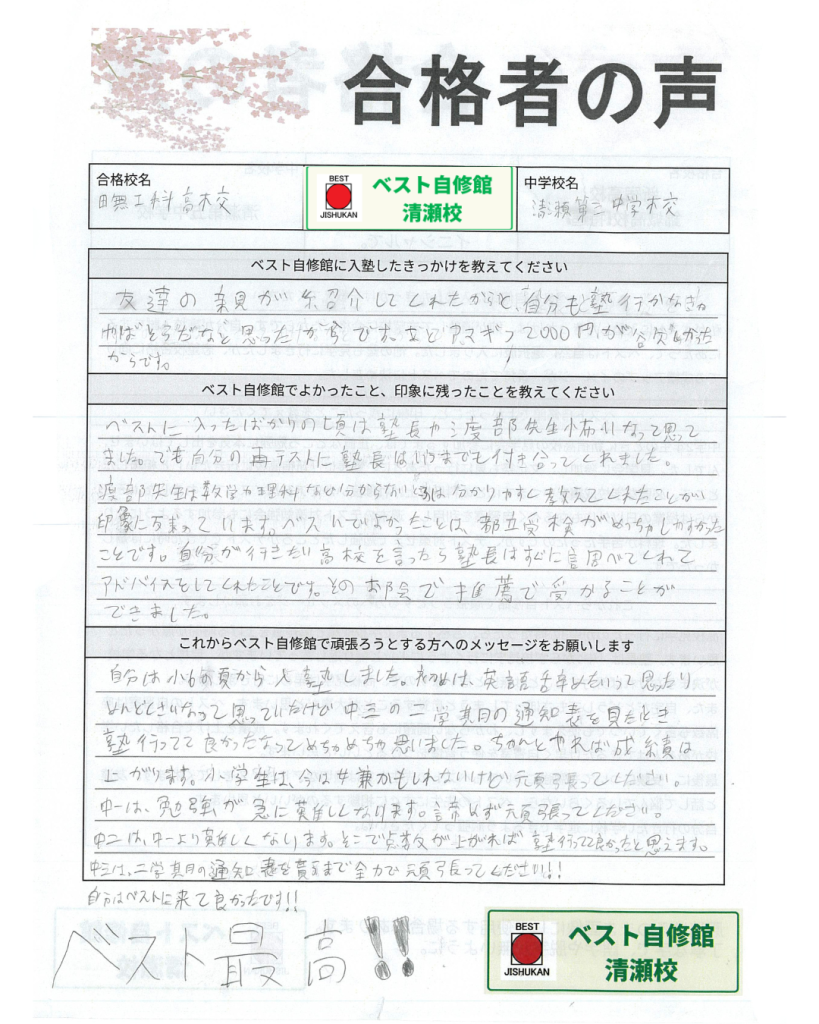 合格者の声
合格校名
田無工科高校
BEST
JISHUKAN
ベスト自修館
清瀬校
中学校名
清瀬第二中学校
ベスト自修館に入塾したきっかけを教えてください
友達の親が紹介してくれたからと、自分も塾行かなきゃ
ればそうだなと思ったからです。あとアマギフ2000円が欲しかった
からです。
ベスト自修館でよかったこと、印象に残ったことを教えてください
ベストに入ったばかりの頃は塾長か渡部先生怖いなって思って
ました。でも自分の再テストに塾長はいつまでも付き合ってくれました。
渡部先生は数学か理科など分からないところは分かりやすく教えてくれたことが
印象に残っています。ベストでよかったことは、都立受検がめっちゃしやすかった
ことです。自分が行きたい高校を言ったら塾長はすぐに調べてくれて
アドバイスをしてくれたことです。そのお陰で推薦で受かることが
できました。
これからベスト自修館で頑張ろうとする方へのメッセージをお願いします
自分は小6の頃から入塾しました。初めは、英語辞めたいって思ったり
めんどくさいなって思っていたけど中三の二学期の通知表を見たとき
塾行ってて良かったなってめちゃめちゃ思いました。ちゃんとやれば成績は
上がります。小学生は、今は嫌かもしれないけど頑張ってください。
中一は、勉強が急に難しくなります。諦めず頑張ってください。
中二は、中一より難しくなります。そこで点数が上がれば塾行ってて良かったと思えます。
中三は、二学期の通知表を貰うまで全力で頑張ってください!!
自分はベストに来て良かったです!!
ベスト最高!!
BEST
JISHUKAN
ベスト自修館
清瀬校